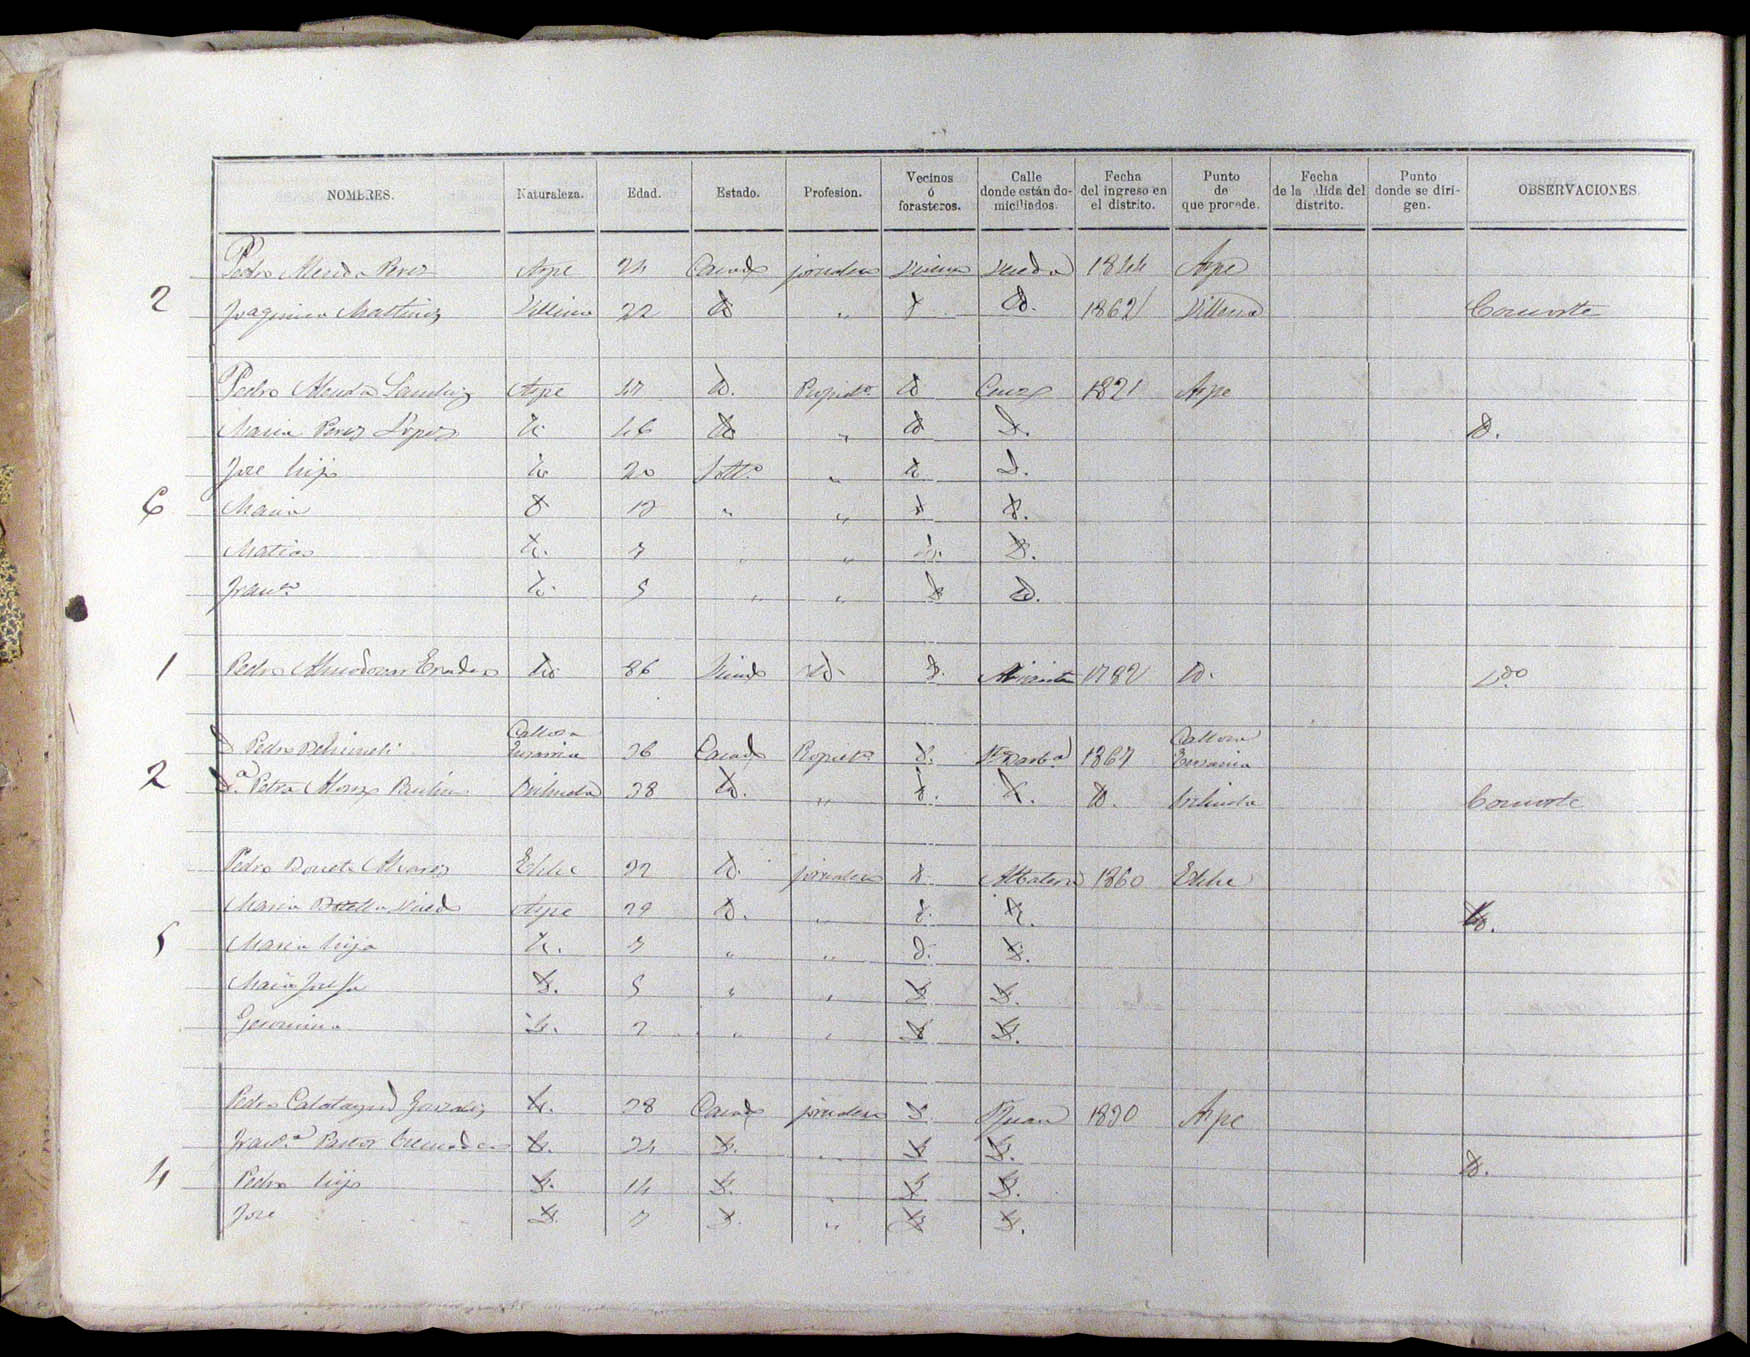 NOMBRES. Naturaleza. Edad. Estado. Profesion. Vecinos ó forasteros. Calle donde están domiciliados. Fecha del ingreso en el distrito. Punto de que procede. Fecha de la salida del distrito. Punto donde se dirigen. OBSERVACIONES.
Pedro Perez Aspe 24 Casado jornalero Vecino 1844 Aspe
2 Joaquina Martinez Villena 22 id. " id. id. 1862 Villena Consorte
Pedro Aspe 47 id. id. Cruz 1821 Aspe
Maria Perez Lopez id. 46 id. " id. id. id.
Jose hijo id. 20 Soltº " id. id.
6 Maria id. 12 " " id. id.
Matias id. 7 " " id. id.
Franca id. 5 " " id. id.
1 Pedro Almodovar id. 86 Viudo id. id. 1782 id.
D. Pedro Callosa Ensarria 36 Casado Propietº id. Sta Barba 1867 Callosa Ensarria
2 D.a Petra Orihuela 38 id. " id. id. id. Orihuela Consorte
Pedro Alvarez Elche 32 id. jornalero id. Albatera 1860 Elche
Maria Botella Aspe 29 id. " id. id. id.
5 Maria hija id. 7 " " id. id.
Maria Josefa id. 5 " " id. id.
Geronima id. 2 " " id. id.
Pedro Calatayud Gonzalez id. 38 Casado jornalero id. S Juan 1830 Aspe
Franca Pastor Cremades id. 34 id. " id. id. id.
4 Pedro hijo id. 14 id. " id. id.
Jose id. 7 id. " id. id.